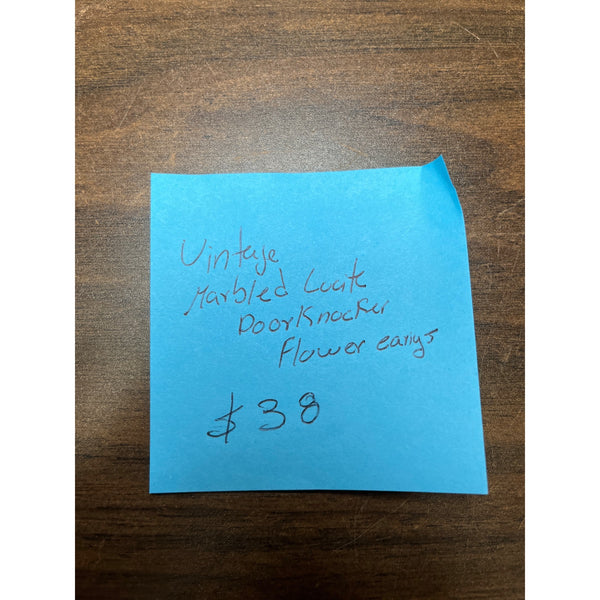 Vintage
Marbled Lucite
Doorknocker
Flower earings
$38